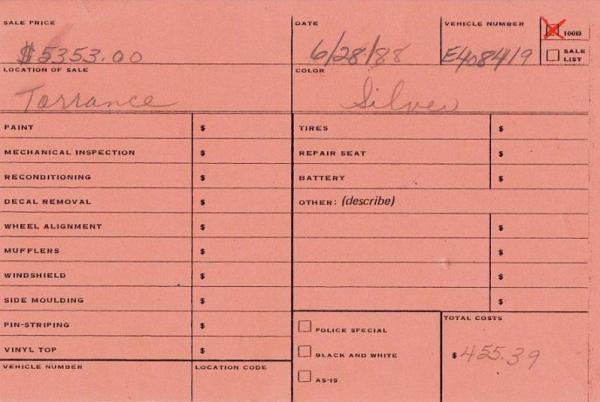 SALE PRICE DATE VEHICLE NUMBER
$5353.00 6/28/88 E408419 100ID
SALE LIST
LOCATION OF SALE COLOR
Torrance Silver
PAINT $ TIRES $
MECHANICAL INSPECTION $ REPAIR SEAT $
RECONDITIONING $ BATTERY $
DECAL REMOVAL $ OTHER: (describe)
WHEEL ALIGNMENT $ $
MUFFLERS $ $
WINDSHIELD $ $
SIDE MOULDING $ $
PIN-STRIPING $ POLICE SPECIAL TOTAL COSTS
VINYL TOP $ BLACK AND WHITE $455.39
VEHICLE NUMBER LOCATION CODE AS-IS